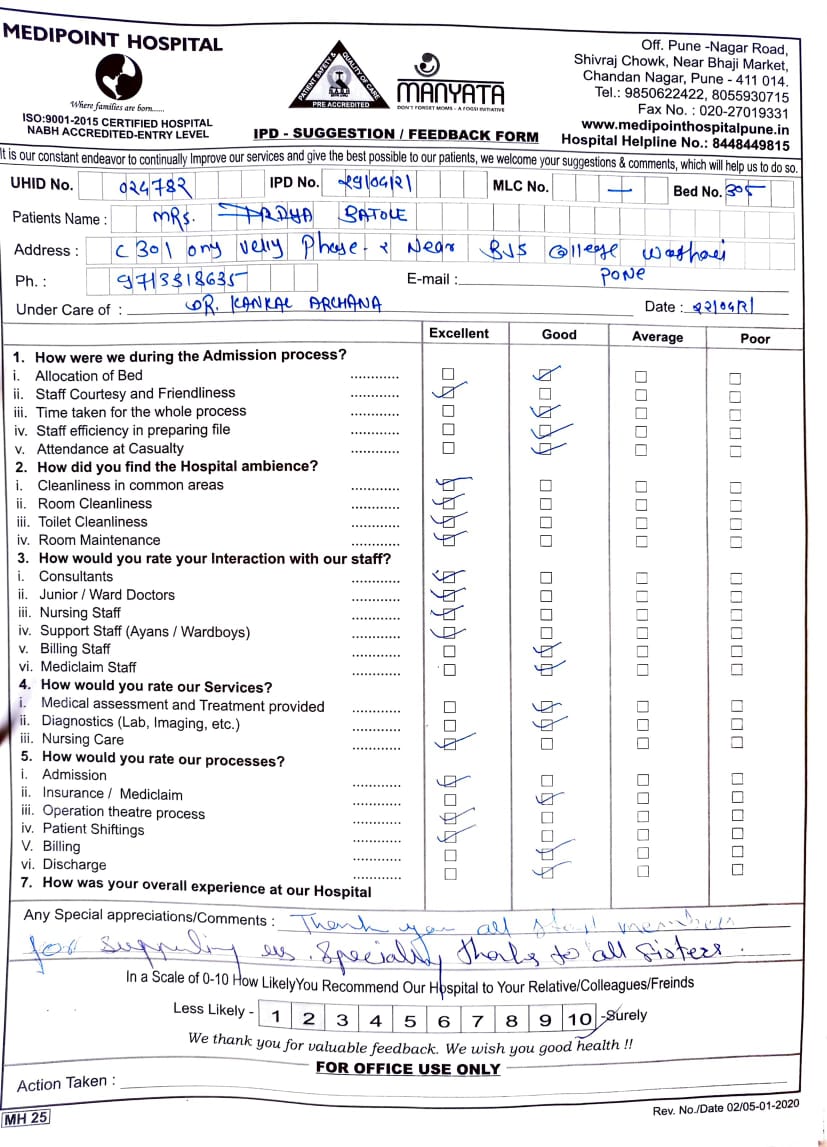 MEDIPOINT HOSPITAL
Where families are born......
ISO:9001-2015 CERTIFIED HOSPITAL
NABH ACCREDITED-ENTRY LEVEL
PATIENT SAFETY & QUALITY OF CARE
PRE ACCREDITED
MANYATA
DON'T FORGET MOMS - A FOGSI INITIATIVE
IPD - SUGGESTION / FEEDBACK FORM
Off. Pune -Nagar Road,
Shivraj Chowk, Near Bhaji Market,
Chandan Nagar, Pune - 411 014.
Tel.: 9850622422, 8055930715
Fax No. : 020-27019331
www.medipointhospitalpune.in
Hospital Helpline No.: 8448449815
It is our constant endeavor to continually Improve our services and give the best possible to our patients, we welcome your suggestions & comments, which will help us to do so.
UHID No. 024782 IPD No. 29/04/21 MLC No. — Bed No. 305
Patients Name : MRS. BATOLE
Address : C 301 Phase - 2 Near BJS College
PUNE
Ph. : 9713318635 E-mail :
Under Care of : DR. KANKAL ARCHANA Date : 22/04/21
Excellent Good Average Poor
1. How were we during the Admission process?
i. Allocation of Bed ............
ii. Staff Courtesy and Friendliness ............
iii. Time taken for the whole process ............
iv. Staff efficiency in preparing file ............
v. Attendance at Casualty ............
2. How did you find the Hospital ambience?
i. Cleanliness in common areas ............
ii. Room Cleanliness ............
iii. Toilet Cleanliness ............
iv. Room Maintenance ............
3. How would you rate your Interaction with our staff?
i. Consultants ............
ii. Junior / Ward Doctors ............
iii. Nursing Staff ............
iv. Support Staff (Ayans / Wardboys) ............
v. Billing Staff ............
vi. Mediclaim Staff ............
4. How would you rate our Services?
i. Medical assessment and Treatment provided ............
ii. Diagnostics (Lab, Imaging, etc.) ............
iii. Nursing Care ............
5. How would you rate our processes?
i. Admission ............
ii. Insurance / Mediclaim ............
iii. Operation theatre process ............
iv. Patient Shiftings ............
V. Billing ............
vi. Discharge ............
7. How was your overall experience at our Hospital
Any Special appreciations/Comments : Thank you all staff members
for supporting us. Specially thanks to all sisters.
In a Scale of 0-10 How LikelyYou Recommend Our Hospital to Your Relative/Colleagues/Freinds
Less Likely - 1 2 3 4 5 6 7 8 9 10 -Surely
We thank you for valuable feedback. We wish you good health !!
FOR OFFICE USE ONLY
Action Taken :
MH 25
Rev. No./Date 02/05-01-2020